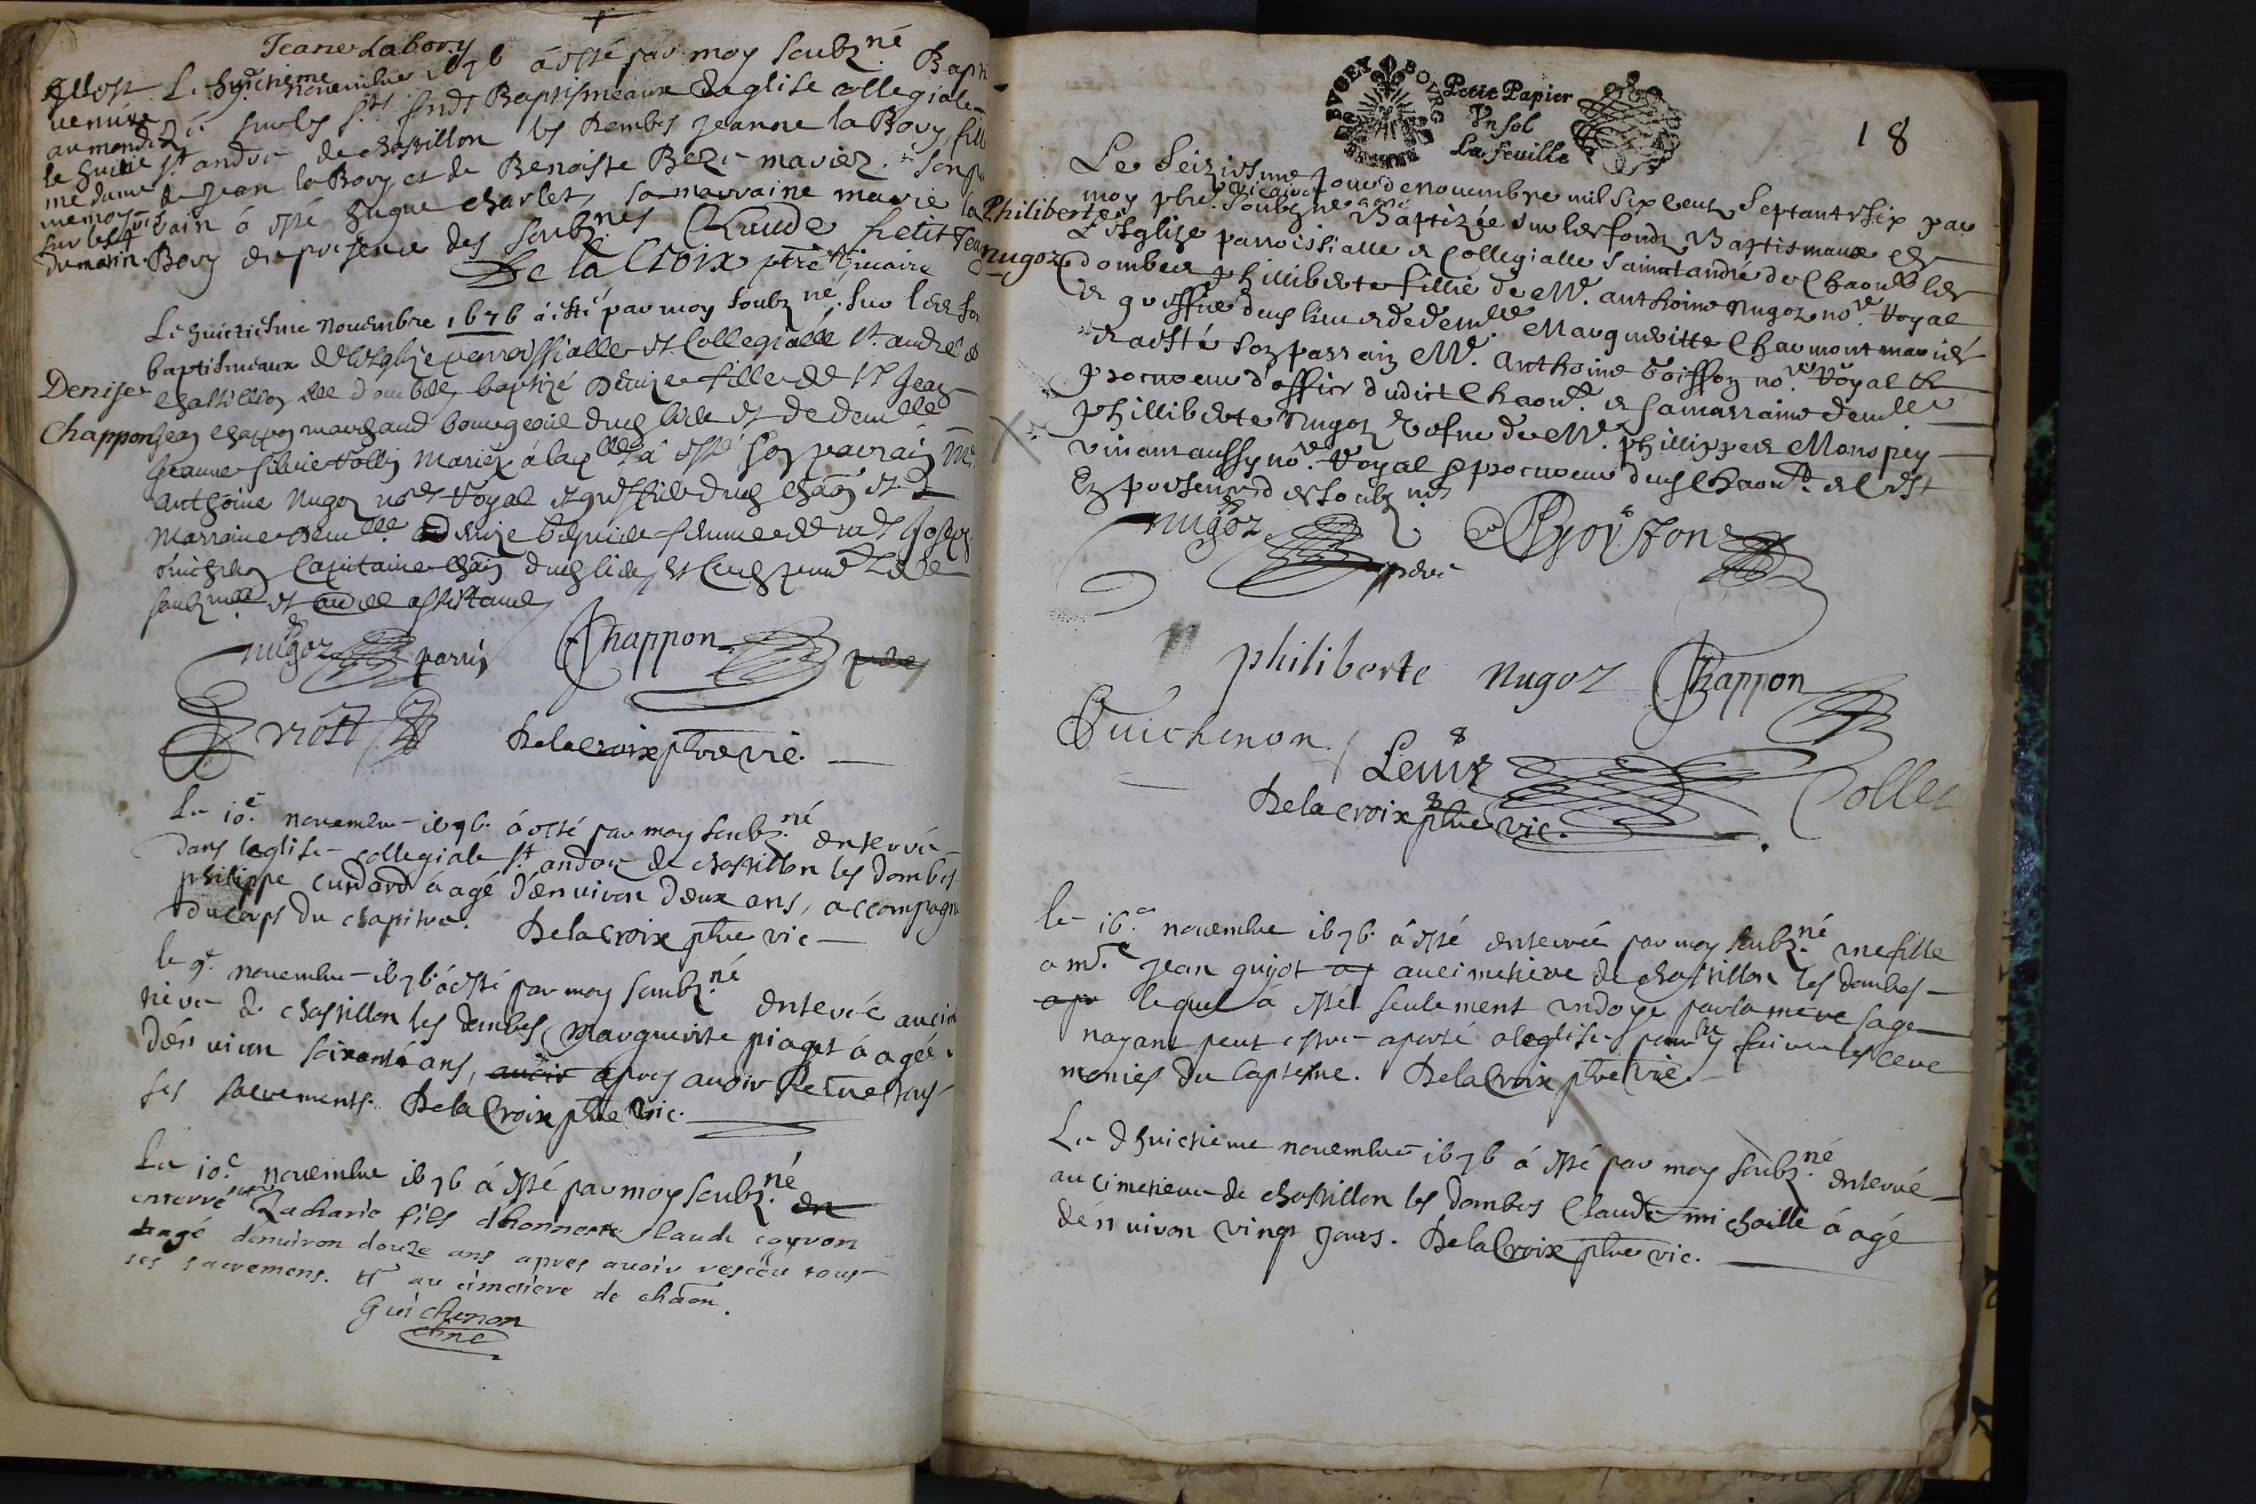 Jeane Labory
Elle est
venüe
au monde
le huitie
me dune
sur les 4
du matin
Le huictieme novembre 1676 á esté par moy soubz.né Bapti
sur les sts fonds Baptismeaux de leglise collegiale
st andre de chastillon les Dombes jeanne la Bory fille
de jean la Bory et de Benoiste Beze mariez. son par
rain á esté hugue charlet, sa marraine marie la
Bory en presence des soubz.nes Claude petit Jean
De la Croix ptre vicaire
Denise
Chappon
Le huictiesme novembre 1676 á esté par moy soubz.né sur les fon
baptismeaux de lesglize parroissialle et Collegialle st. andré de
chastillion les dombes baptizé Denize fille de sr Jean
Jean chappon marchand bourgeois dud lieu et de demlle
Jeanne Mariez á esté son parrain Mr.
anthoine Nugoz nore Royal et greffier dud chaon et
Marraine Demlle Denize femme de Joseph
Guichenon Capitaine chaon dud lieu
soubz.nes et assistans
nugoz parrin Chappon pere
Delacroix pbre vic.
Le 10e. novembre 1676. á esté par moy soubz.né enterré
dans leglise collegiale st andre de chastillon les dombes
philippe curdard á agé denviron deux ans, accompagné
du corps du chapitre. Delacroix pbre vic
le 9e. novembre 1676. á esté par moy soubz.né enterré au cime
tiere de chastillon les dombes marguerite piaget á agée
denviron soixante ans, avoir apres avoir Receue tous
ses sacrements. Dela Croix pbre vic.
Le 10e. novembre 1676 á esté par moy soubz.né en
enterré Zacharie fils dhonneste claude cayron
aagé denviron douze ans apres avoir resceu tous
ses sacremens. et au cimetiere de chaon.
Guichenon
chne
BVGEY BOVRG BRESSE
Petit Papier
Vn sol
La feuille
18
Philiberte
nugoz
Le Seiziesme jour de novembre mil six cent septante six par
moy pbre. vicaire soubzne a esté Baptizée sur les fondz Baptismaux de
L'esglize parroissialle et Collegialle sainct andré de Chaon les
dombes philliberte fillie de Mr. anthoine nugoz nore. Royal
et greffier dud lieu et de demlle. Margueritte Chaumont mariés
et a esté son parrain Mr. anthoine Goiffon nore. Royal et
procureur d'office dudict Chaon. et sa marraine demlle
philliberte nugoz vefve de Mr. phillippes Monspey
vivant aussy nore. Royal & procureur dud Chaon. et c'est
En presence des soubz.nes
nugoz pere Goyffon
philiberte nugoz Chappon
Guichenon
Collet
Delacroix pbre vic.
le 16e. novembre 1676. á esté enterrée par moy soubz.né une fille
a mr. jean guijot au cimetiere de chastillon les dombes
lequel á esté seulement undoyé par la mere sage
nayant peut estre aporté a leglise pour luy faire les cere
monies du Baptesme. Dela Croix pbre vic.
Le dhuictieme novembre 1676 á esté par moy soubz.né enterré
au cimetiere de chastillon les dombes Claude michaille á agé
denviron vingt jours. Dela Croix pbre vic.